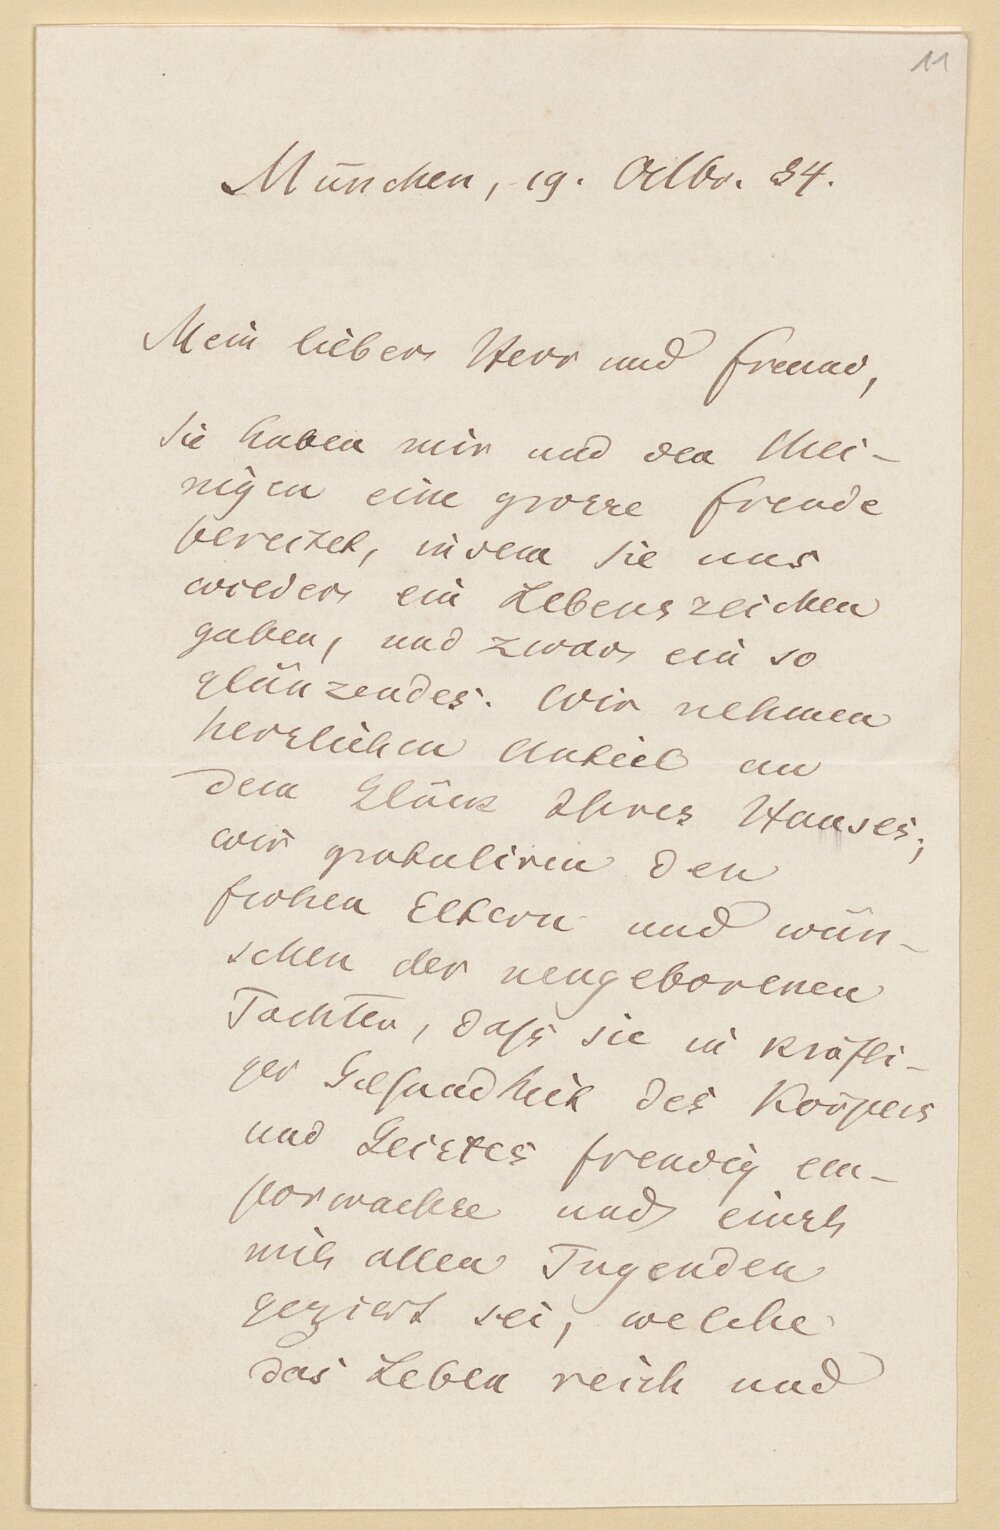 11
München, 19. Octbr. 84.
Mein lieber Herr und Freund,
Sie haben mir und den Mei-
nigen eine grosse Freude
bereitet, indem Sie uns
wieder ein Lebenszeichen
gaben, und zwar ein so
glänzendes. Wir nehmen
herzlichen Anteil an
dem Glück Ihres Hauses;
wir gratuliren den
frohen Eltern und wün-
schen der neugeborenen
Tochter, daß sie in kräfti-
ger Gesundheit des Körpers
und Geistes freudig em-
porwachse und einst
mit allen Tugenden
geziert sei, welche
das Leben reich und